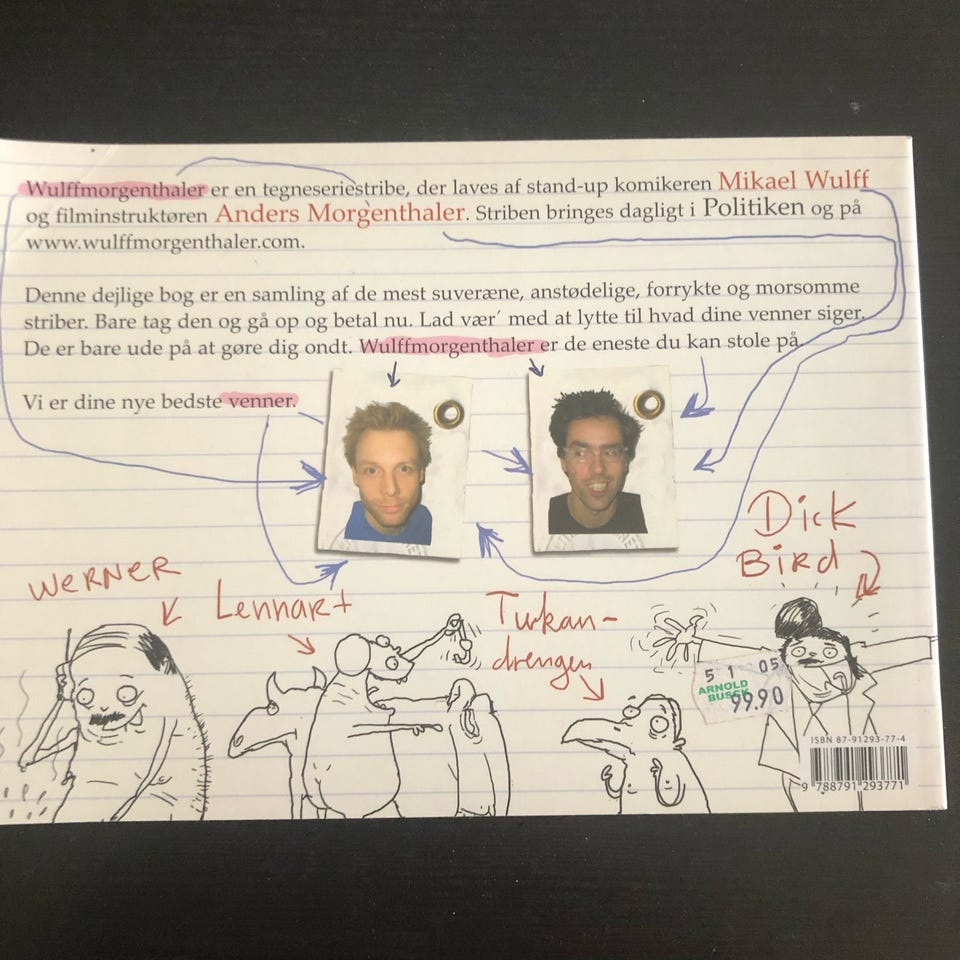 Wulffmorgenthaler er en tegneseriestribe, der laves af stand-up komikeren Mikael Wulff
og filminstruktøren Anders Morgenthaler. Striben bringes dagligt i Politiken og på
www.wulffmorgenthaler.com.
Denne dejlige bog er en samling af de mest suveræne, anstødelige, forrykte og morsomme
striber. Bare tag den og gå op og betal nu. Lad vær´ med at lytte til hvad dine venner siger.
De er bare ude på at gøre dig ondt. Wulffmorgenthaler er de eneste du kan stole på.
Vi er dine nye bedste venner.
Werner
Lennart
Turkan-
drengen
Dick
Bird
5 1 05
ARNOLD
BUSCK
99.90
ISBN 87-91293-77-4
9 788791 293771